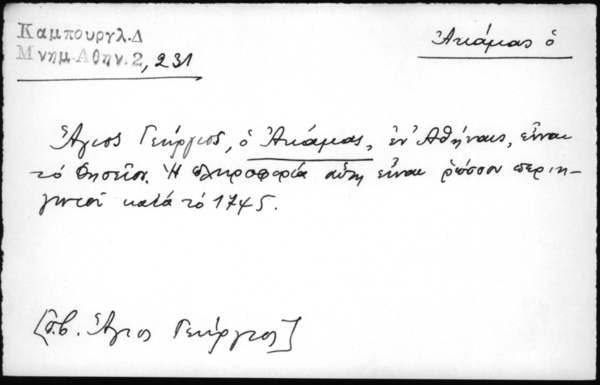 Καμπουργλ.Δ
Μνημ.Αθην.2, 231
Ἀκάμας ὁ
Ἅγιος Γεώργιος, ὁ Ἀκάμας, ἐν Ἀθήναις, εἶναι
τό Θησεῖον. Ἡ πληροφορία αὕτη εἶναι ῥώσσου περιη-
γητοῦ κατά τό 1745.
[π.β. Ἅγιος Γεώργιος]